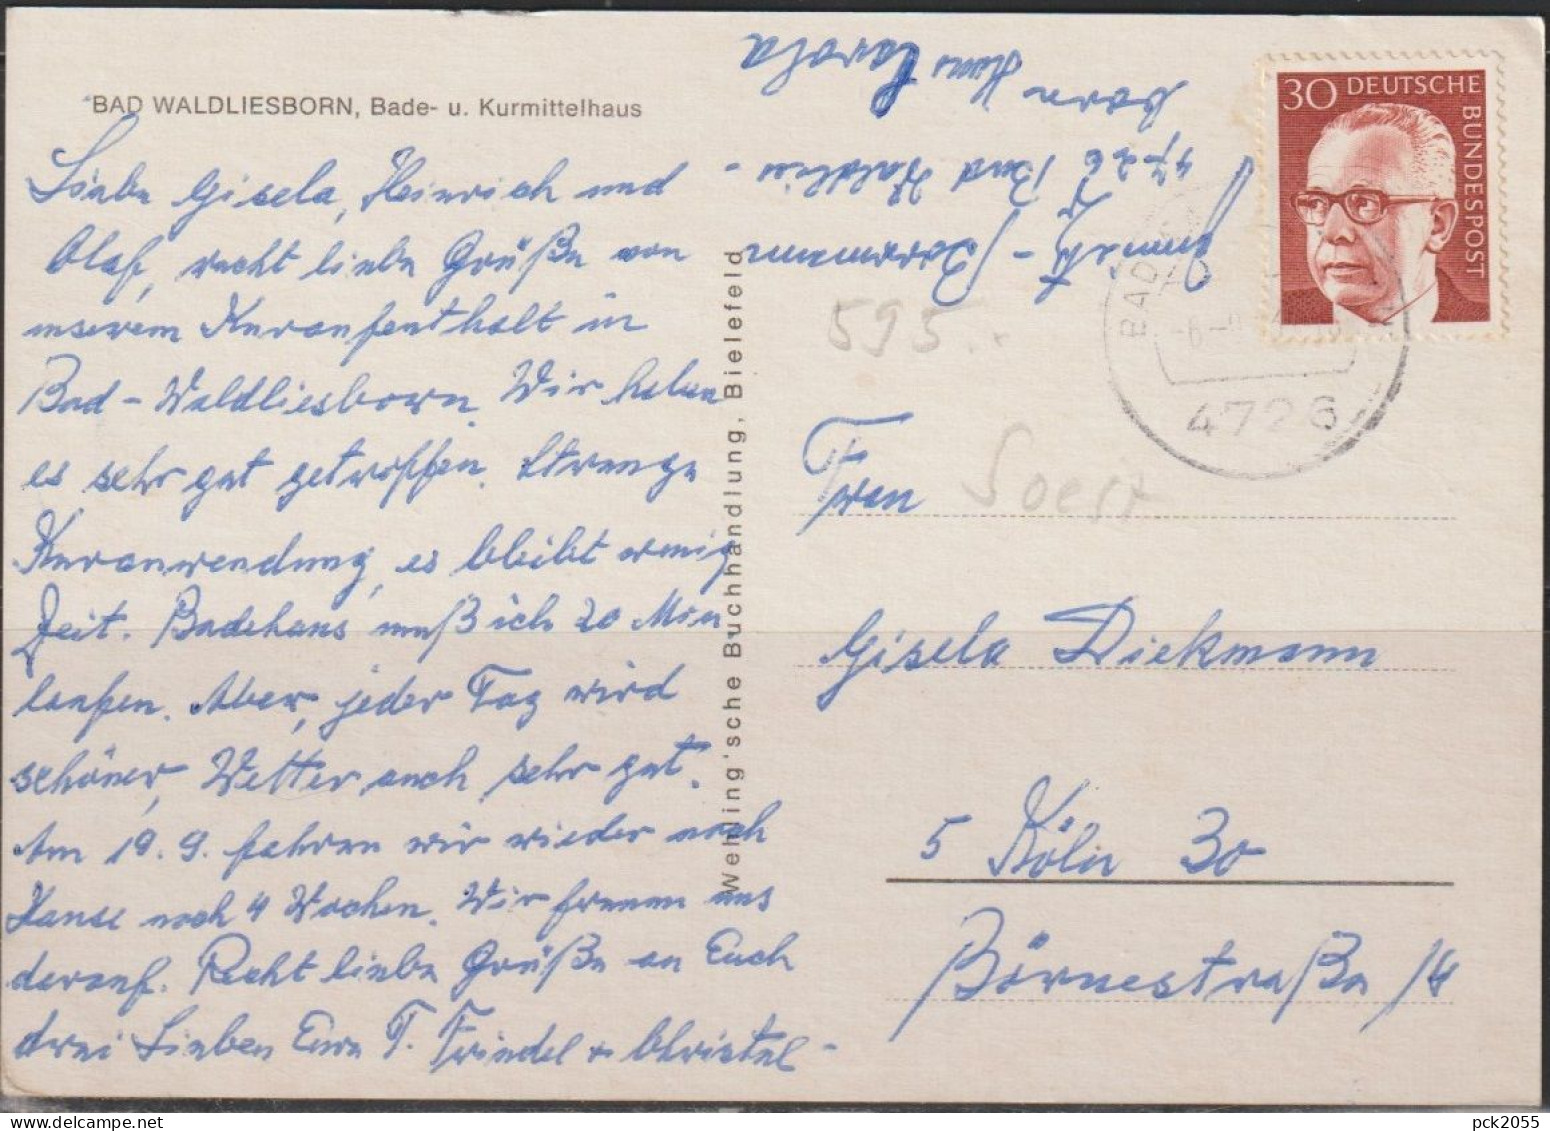 BAD WALDLIESBORN, Bade- u. Kurmittelhaus
Liebe Gisela, Heinrich und
Olaf, recht liebe Grüße von
unserem Kuraufenthalt in
Bad-Waldliesborn. Wir haben
es sehr gut getroffen. Strenge
Kuranwendung, es bleibt wenig
Zeit. Badehaus muß ich 20 Min
laufen. Aber, jeder Tag wird
schöner, Wetter auch sehr gut.
Am 19.9. fahren wir wieder nach
Hause nach 4 Wochen. Wir freuen uns
darauf. Recht liebe Grüße an Euch
drei Lieben Eure T. Friedel + Christel -
4726 Bad Waldlies-
born Haus Carola
Wehling'sche Buchhandlung, Bielefeld
30 DEUTSCHE BUNDESPOST
BAD
4726
595.-
Soest
Frau
Gisela Diekmann
5 Köln 30
Börnestraße 14
pck2055